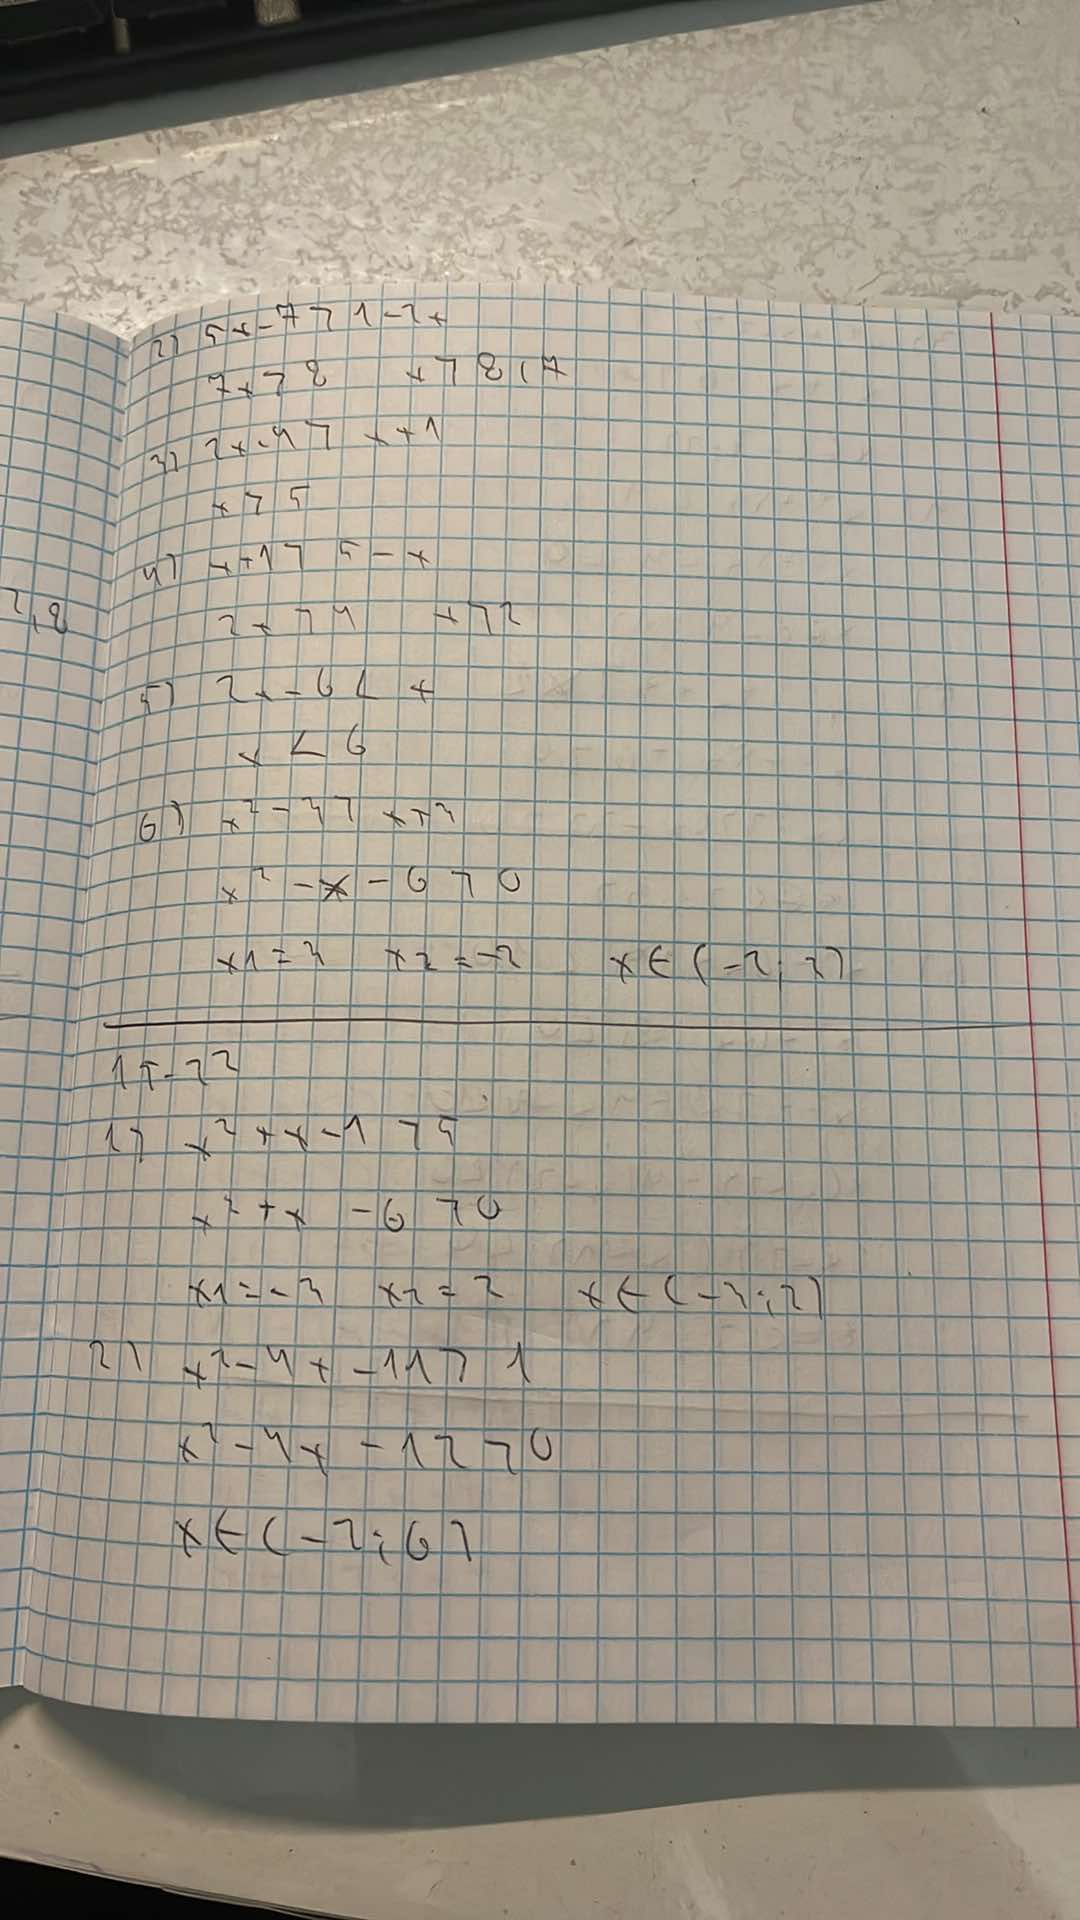 2) 5x-7>1-2x
7x>8 x>8/7
3) 2x-4> x+1
x>5
4) x+1> 5-x
2,8
2x>4 x>2
5) 2x-6< x
x<6
6) x²-3> x+3
x²-x-6>0
x1=3 x2=-2 x∈(-2; 3)
15-22
1) x²+x-1>5
x²+x-6>0
x1=-3 x2=2 x∈(-3;2)
2) x²-4x-11>1
x²-4x-12>0
x∈(-2;6)